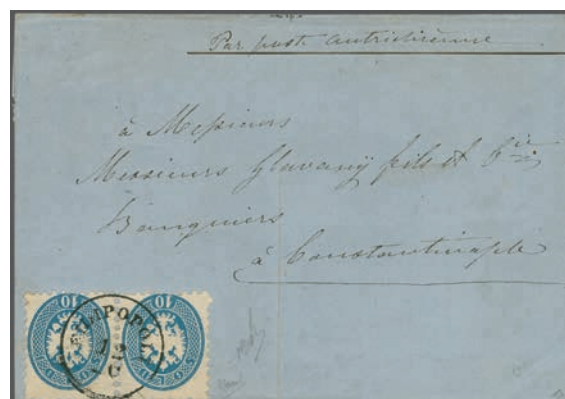 Par poste autrichienne
à Messieurs
Messieurs Glavany fils et Cie
Banquiers
à Constantinople
10 10
PHILIPPOPOLI